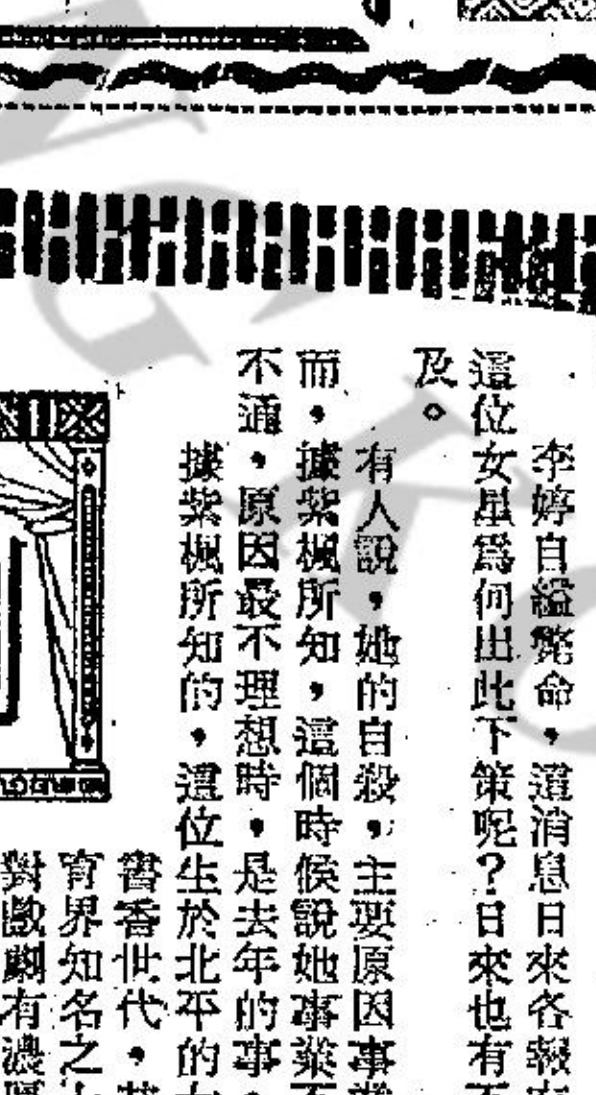 李婷自縊斃命，這消息日來各報
這位女星爲何出此下策呢？日來也有不
及。
有人說，她的自殺，主要原因事業
而，據紫楓所知，這個時候說她事業不
不通，原因最不理想時，是去年的事，
據紫楓所知的，這位生於北平的女
書香世代，其
育界知名之
對戲劇有濃厚